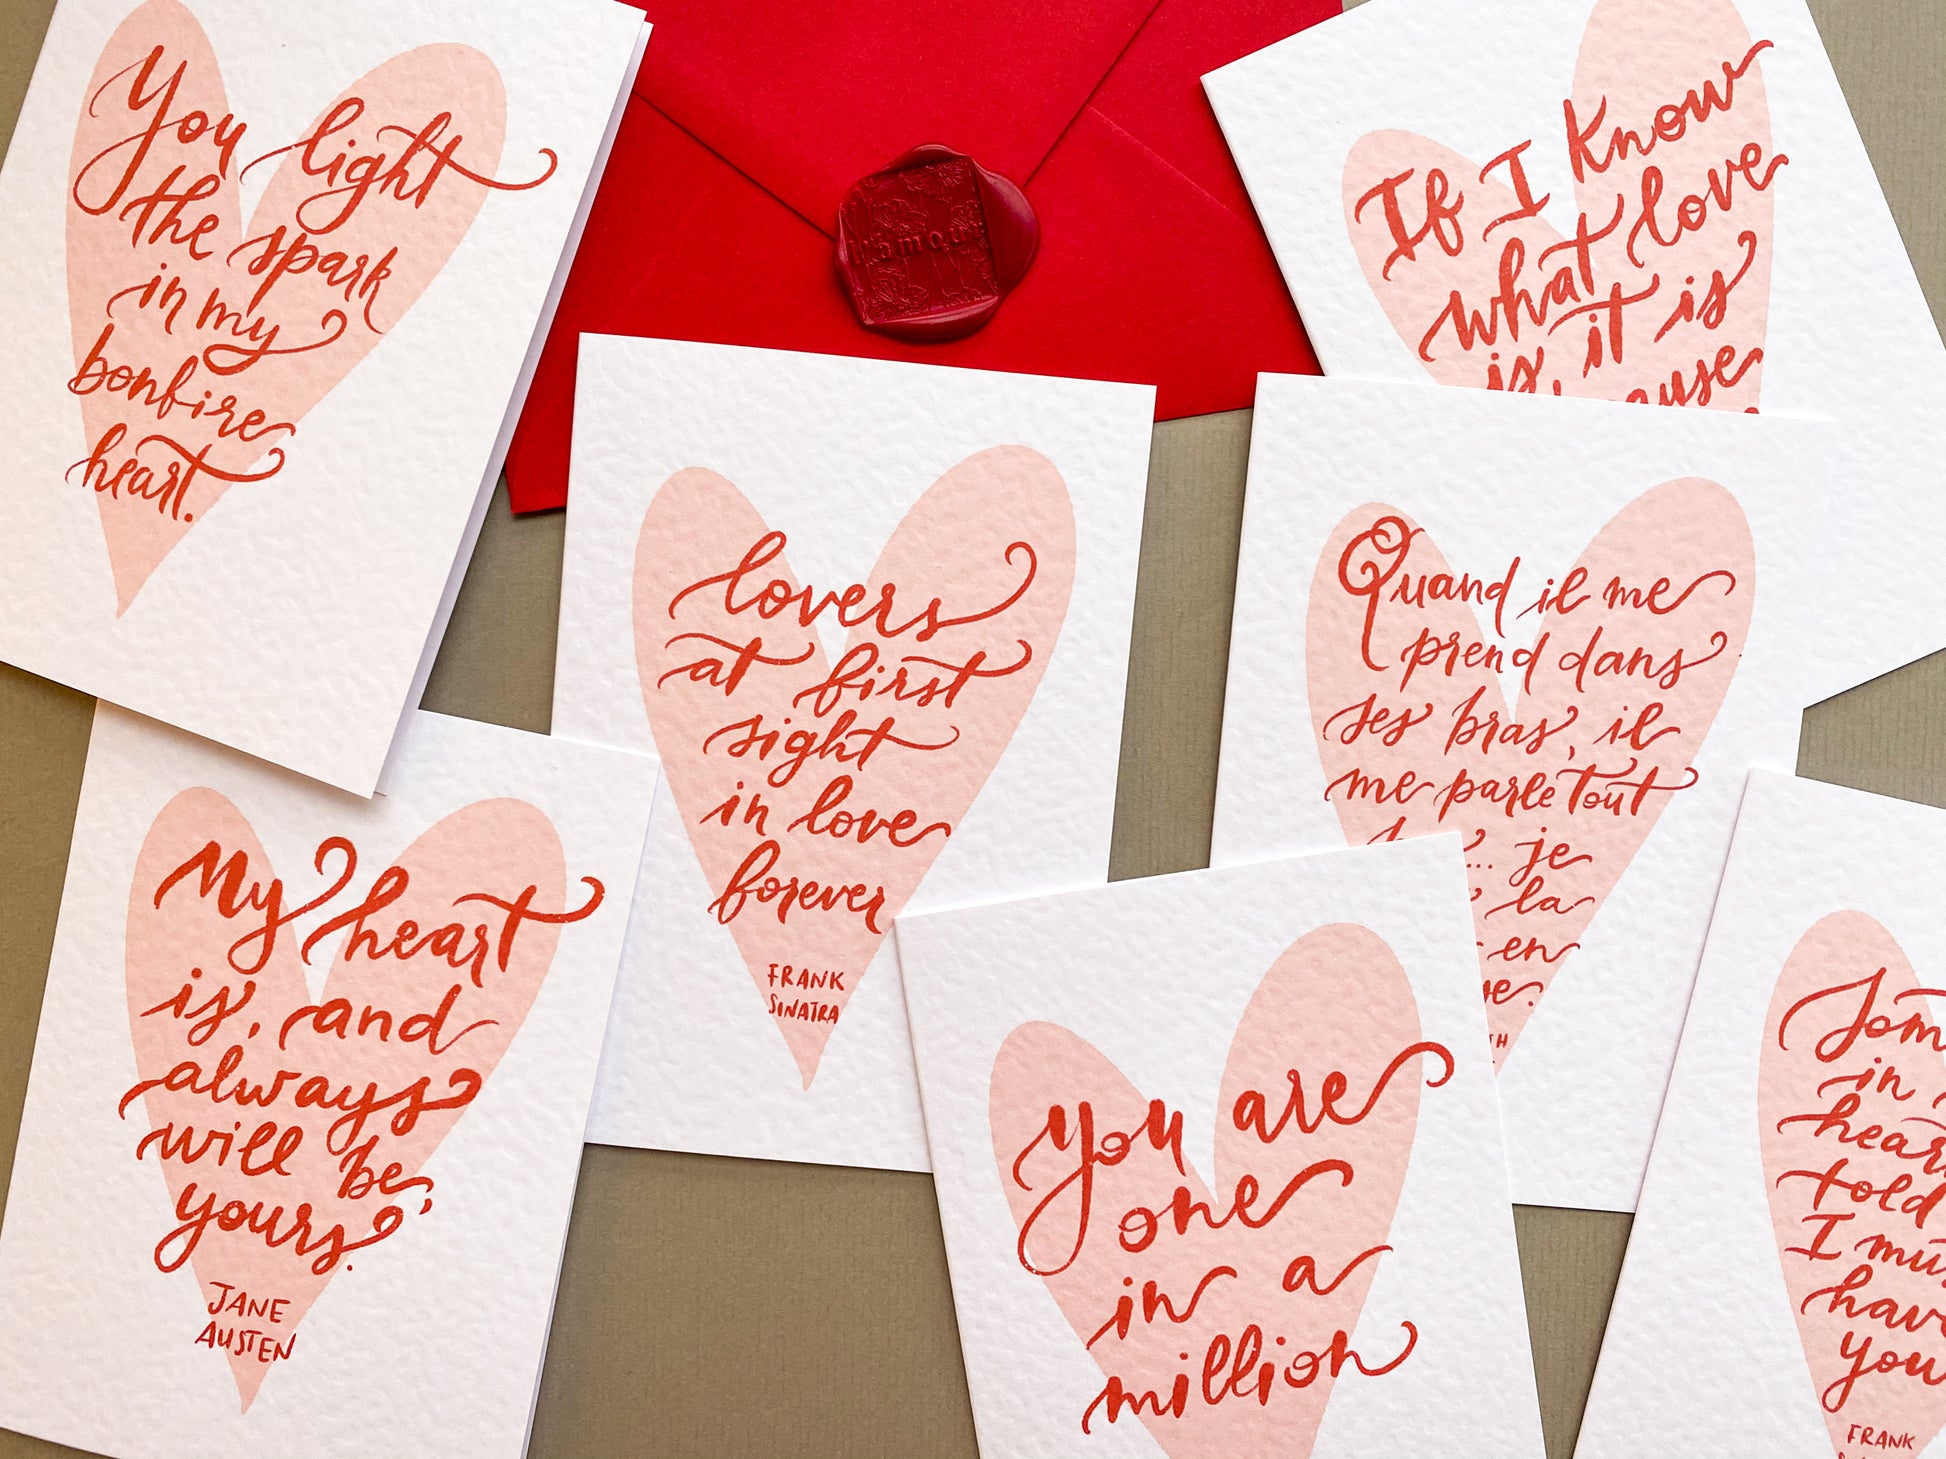 You light
the spark
in my
bonfire
heart.
l'amour
If I know
what love
is, it is
lovers
at first
sight
in love
forever
FRANK
SINATRA
Quand il me
prend dans
ses bras, il
me parle tout
je
la
en
My heart
is, and
always
will be,
yours.
JANE
AUSTEN
You are
one
in a
million
in
told
I
you
FRANK